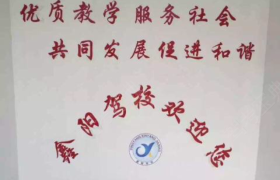 优质教学 服务社会
共同发展促进和谐
鑫阳驾校欢迎您